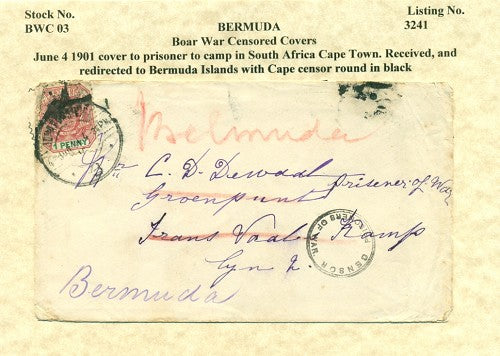 Stock No.
BWC 03
BERMUDA
Listing No.
3241
Boar War Censored Covers
June 4 1901 cover to prisoner to camp in South Africa Cape Town. Received, and
redirected to Bermuda Islands with Cape censor round in black
1 PENNY
Bermuda
C. D. Dewaal prisoner of War
Groenpunt
Trans Vaal Kamp
Bermuda
CENSOR
PRISONERS OF WAR